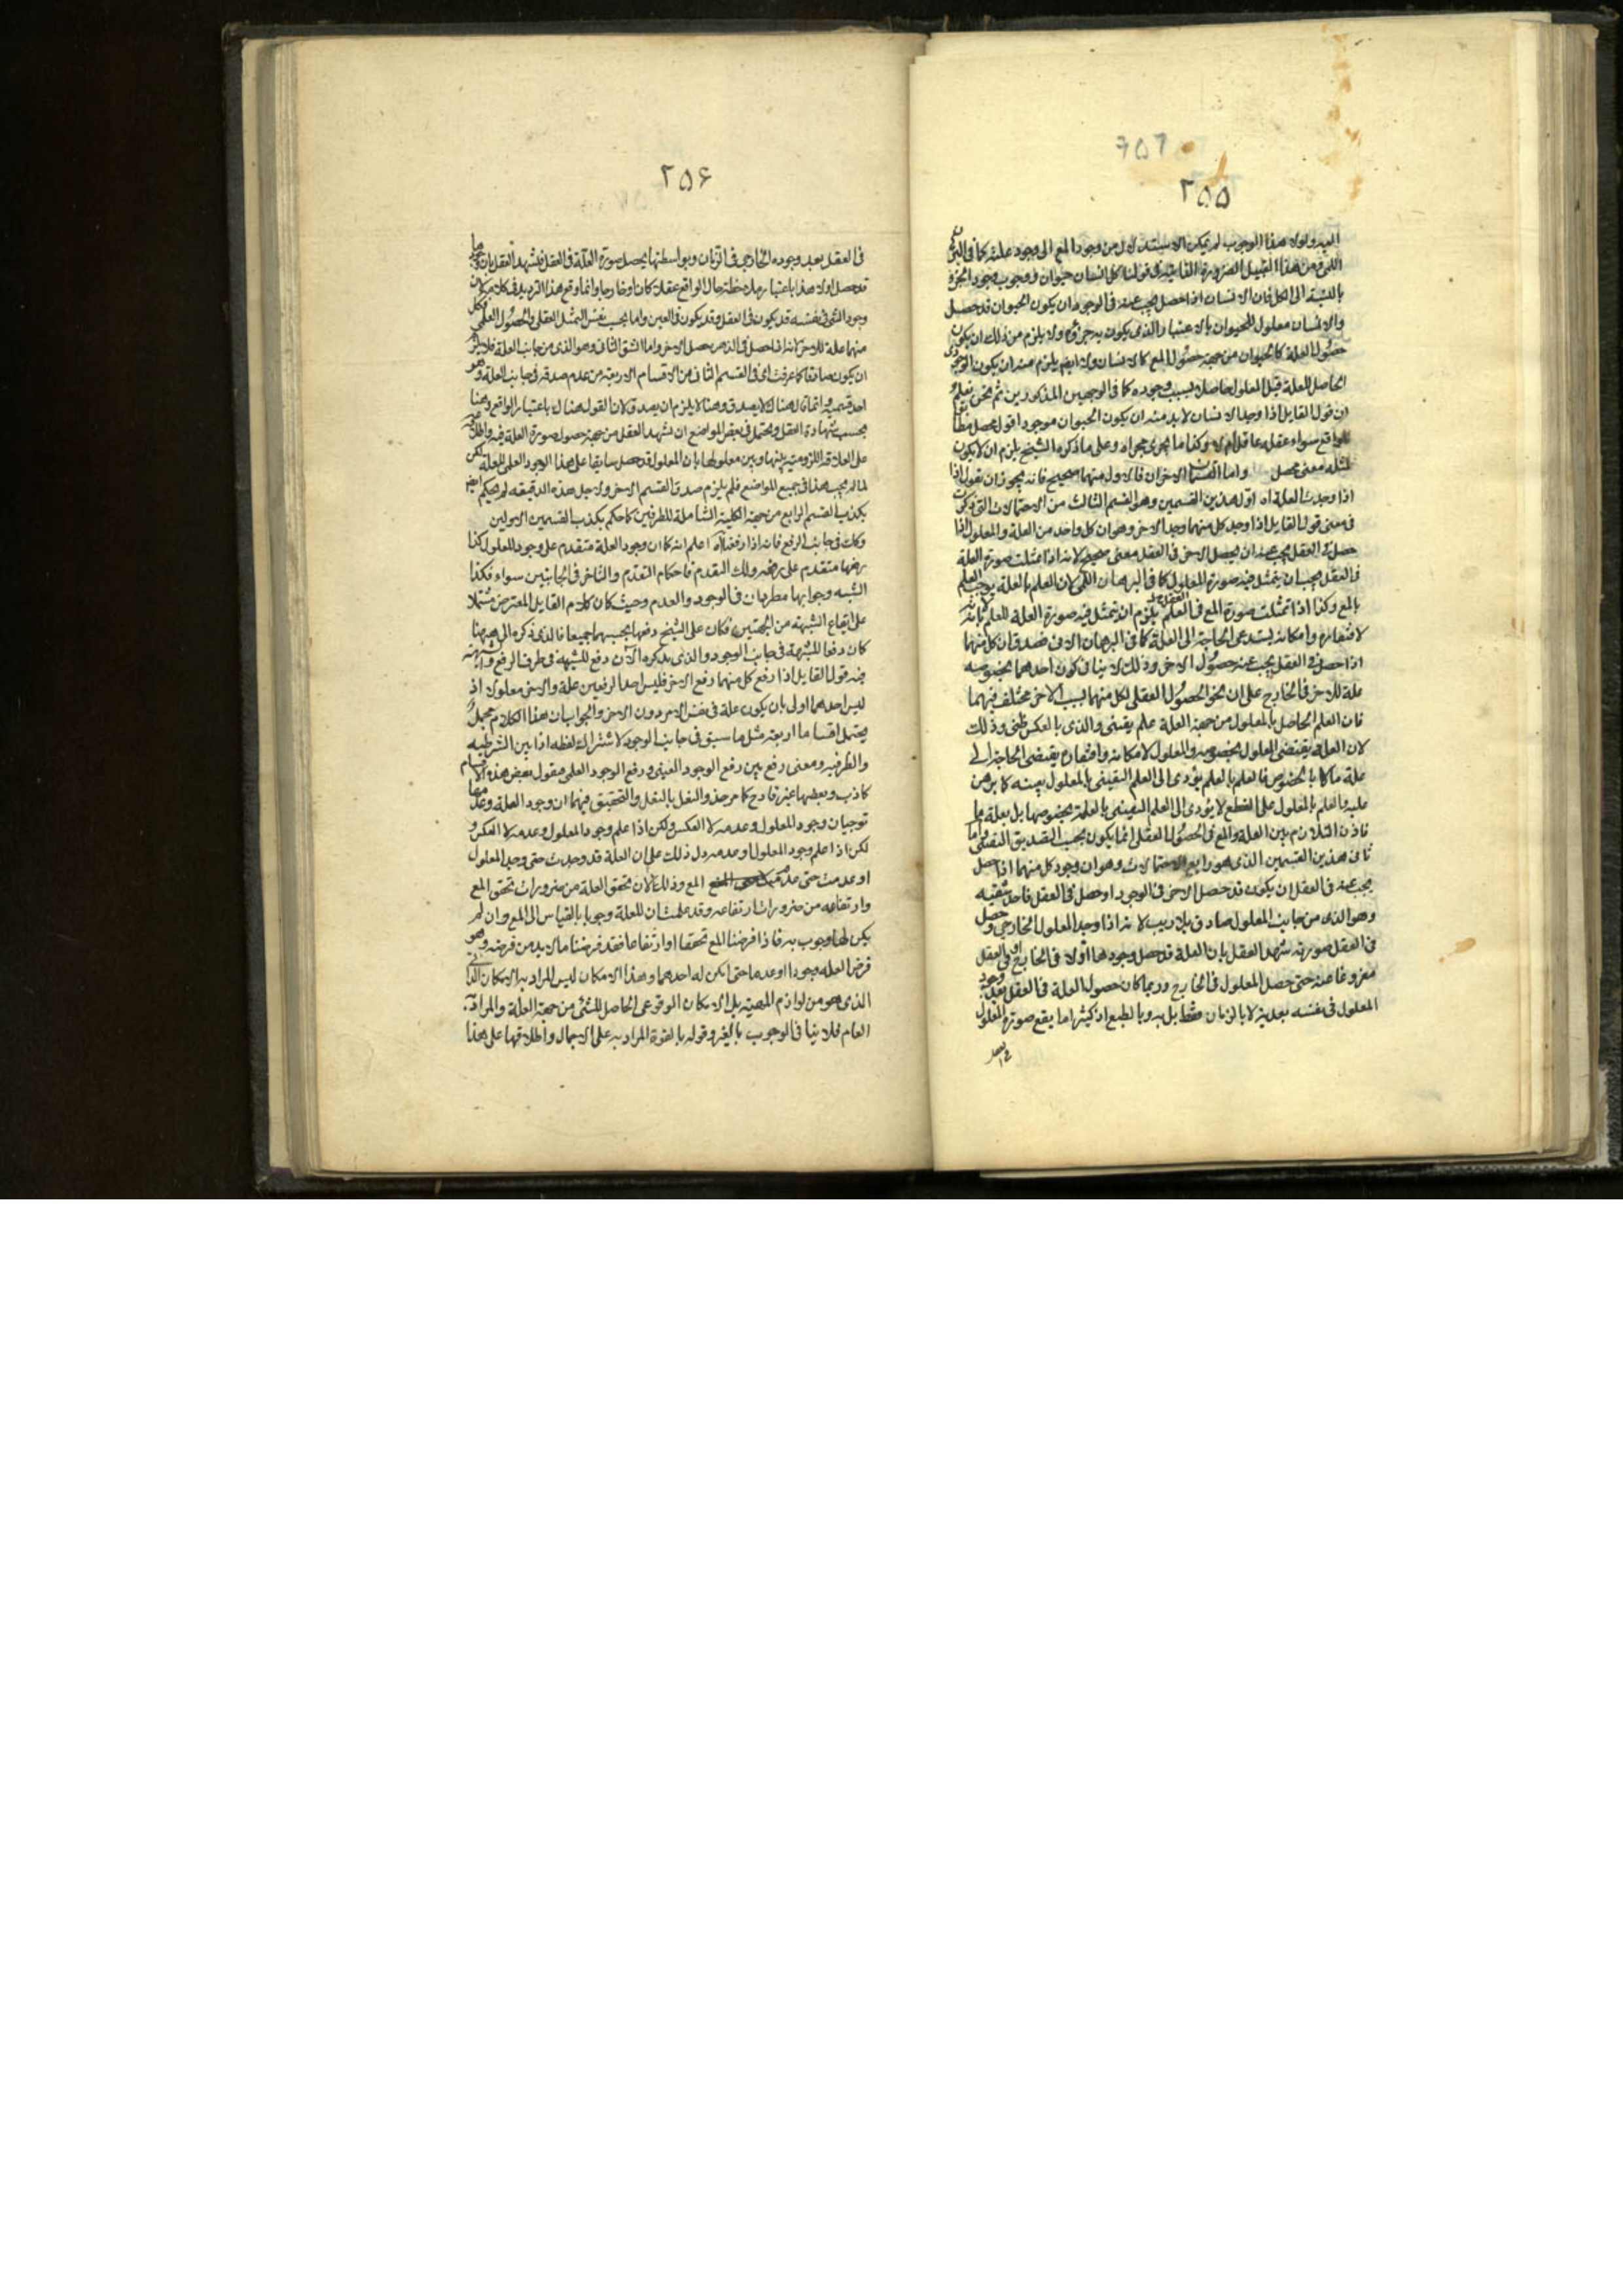 ۲۵۵
اليه ولولا هذا الوجوب لم يمكن الاستدلال من وجود المع الى وجود علته كما في البرهان
اللمى ومن هذا القبيل الضرورة الذاتية في قولنا كل انسان حيوان ووجوب وجود الجزء
بالنسبة الى الكل فان الانسان اذا حصل يجب عنه في الوجود ان يكون الحيوان قد حصل
والانسان معلول للحيوان بالاعتبار الذي يكون به جزؤه ولا يلزم من ذلك ان يكون
حصول العلة كالحيوان من جهة حصول المع كالانسان ولا ايضا يلزم منه ان يكون الوجود
الحاصل للعلة قبل المعلول حاصلا بسبب وجوده كما في الوجهين المذكورين ثم نحن نعلم
ان قول القايل اذا وجد الانسان لا بد منه ان يكون الحيوان موجودا قول محصل
للواقع سواء عقله عاقل ام لا وكذا ما يجرى مجراه وعلى ما ذكره الشيخ يلزم ان لا يكون
لمثله معنى محصل واما القسمان الاخران فالاول منهما صحيح فانه يجوز ان نقول اذا
اذا وجدت العلة اه اول هذين القسمين وهو القسم الثالث من الاحتمالات التي ذكرت
في معنى قول القايل اذا وجد كل منهما وجد الاخر وهو ان كل واحد من العلة والمعلول اذا
حصل في العقل يجب عنه ان يحصل الاخر في العقل معنى صحيح لانه اذا تمثلت صورة العلة
في العقل يجب ان يتمثل فيه صورة المعلول كما في البرهان اللمى لان العلم بالعلة يوجب العلم
بالمع وكذا اذا تمثلت صورة المع في العقل يلزم ان يتمثل فيه صورة العلة للعلم بانه
لافتقاره وامكانه يستدعى الحاجة الى العلة كما في البرهان الانى فصدق ان كلا منهما
اذا حصل في العقل يجب عنه حصول الاخر وذلك لا ينافى كون احدهما بخصوصه
علة للاخر في الخارج على ان نحو الحصول العقلى لكل منهما بسبب الاخر مختلف فيهما
فان العلم الحاصل بالمعلول من جهة العلة علم يقينى والذي بالعكس ظنى وذلك
لان العلة يقتضى المعلول بخصوصه والمعلول لامكانه وافتقاره يقتضى الحاجة الى
علة ما لا بالخصوص فالعلم بالعلم يؤدى الى العلم اليقينى بالمعلول بعينه كما برهن
عليه والعلم بالمعلول على القطع لا يؤدى الى العلم اليقينى بالعلة بخصوصها بل بعلة ما
فاذن التلازم بين العلة والمع في الحصول العقلى انما يكون بحسب التصديق اليقينى واما
ثانى هذين القسمين الذي هو رابع الاحتمالات وهو ان وجود كل منهما اذا حصل
يجب عنه في العقل ان يكون قد حصل الاخر في الوجود او حصل في العقل فاحد شقيه
وهو الذي من جانب المعلول صادق بلا ريب لانه اذا وجد المعلول الخارجى وحصل
في العقل صورته شهد العقل بان العلة قد حصل وجودها اولا في الخارج او في العقل
مفروغا عنه حتى حصل المعلول في الخارج وربما كان حصول العلة في العقل بعد وجود
المعلول في نفسه بعدية لا بالزمان فقط بل به وبالطبع اذ كثيرا ما يقع صورة المعلول
۲۵۶
في العقل بعد وجوده الخارجى في الزمان وبواسطتها يحصل صورة العلة في العقل فشهد العقل بان وجودها
قد حصل اولا هذا باعتبار ملاحظة حال الواقع عقلا كان او خارجا وانما وقع هذا الترديد في كلامه لان
وجود الشئ في نفسه قد يكون في العقل وقد يكون في العين واما بحسب نفس التمثل العقلى والحصول العلمى فكل
منهما علة للاخر انه اذا حصل في الذهن حصل الاخر واما الشق الثانى وهو الذي من جانب العلة فلا يلزم
ان يكون صادقا كما عرفت اى في القسم الثانى من الاقسام الاربعة من عدم صدقه في جانب العلة وهو
احد قسميه وانما قال هناك لا يصدق وهنا لا يلزم ان يصدق لان القول هناك باعتبار الواقع وهنا
بحسب شهادة العقل ويحتمل في بعض المواضع ان شهد العقل من جهة حصول صورة العلة فيه واطلاعه
على العلاقة اللزومية بينها وبين معلولها بان المعلول قد حصل سابقا على هذا الوجود العلمى للعلة لكن
لما لم يجب هذا في جميع المواضع فلم يلزم صدق القسم الاخر ولاجل هذه الدقيقة لم يحكم ايضا
بكذب القسم الرابع من جهة الكلية الشاملة للطرفين كما حكم بكذب القسمين الاولين
وكذلك في جانب الرفع فانه اذا رفعنا اه اعلم انه كما ان وجود العلة متقدم على وجود المعلول كذا
رفعها متقدم على رفعه وذلك التقدم فاحكام التقدم والتاخر في الجانبين سواء فكذا
الشبه وجوابها مطردان في الوجود والعدم وحيث كان كلام القايل المعترض مشتملا
على ايقاع الشبهة من الجهتين فكان على الشيخ دفعها بحسبهما جميعا فالذي ذكره الى ههنا
كان دفعا للشبهة في جانب الوجود والذي يذكره الآن دفع للشبهة في طرف الرفع والشبهة
فيه قول القايل اذا رفع كل منهما رفع الاخر فليس احد الرفعين علة والاخر معلولا اذ
ليس احدهما اولى بان يكون علة في نفس الامر دون الاخر والجواب ان هذا الكلام مجمل
يحتمل اقساما اربعة مثل ما سبق في جانب الوجود لاشتراك لفظه اذا بين الشرطية
والظرفية ومعنى رفع بين رفع الوجود العينى ورفع الوجود العلمى فنقول بعض هذه الاقسام
كاذب وبعضها غير قادح كما مر حذو النعل بالنعل والتحقيق فيهما ان وجود العلة وعدمها
توجبان وجود المعلول وعدمه لا العكس ولكن اذا علم وجود المعلول وعدمه لا العكس و
لكن اذا علم وجود المعلول او عدمه دل ذلك على ان العلة قد وجدت حتى وجد المعلول
او عدمت حتى عدم المع وذلك لان تحقق العلة من ضرورات تحقق المع
وارتفاعه من ضرورات ارتفاعه وقد علمت ان للعلة وجوبا بالقياس الى المع وان لم
يكن لها وجوب به فاذا فرضنا المع تحققا او ارتفاعا فقد فرضنا ما لا بد من فرضه وهو
فرض العلة وجودا او عدما حتى امكن له احدهما وهذا الامكان ليس المراد به الامكان الذاتى
الذي هو من لوازم المهية بل الامكان الوقوعى الحاصل للشئ من جهة العلة والمراد به
العام فلا ينافى الوجوب بالغير وقوله بالقوة المراد به على الاجمال واطلاقها على هذا